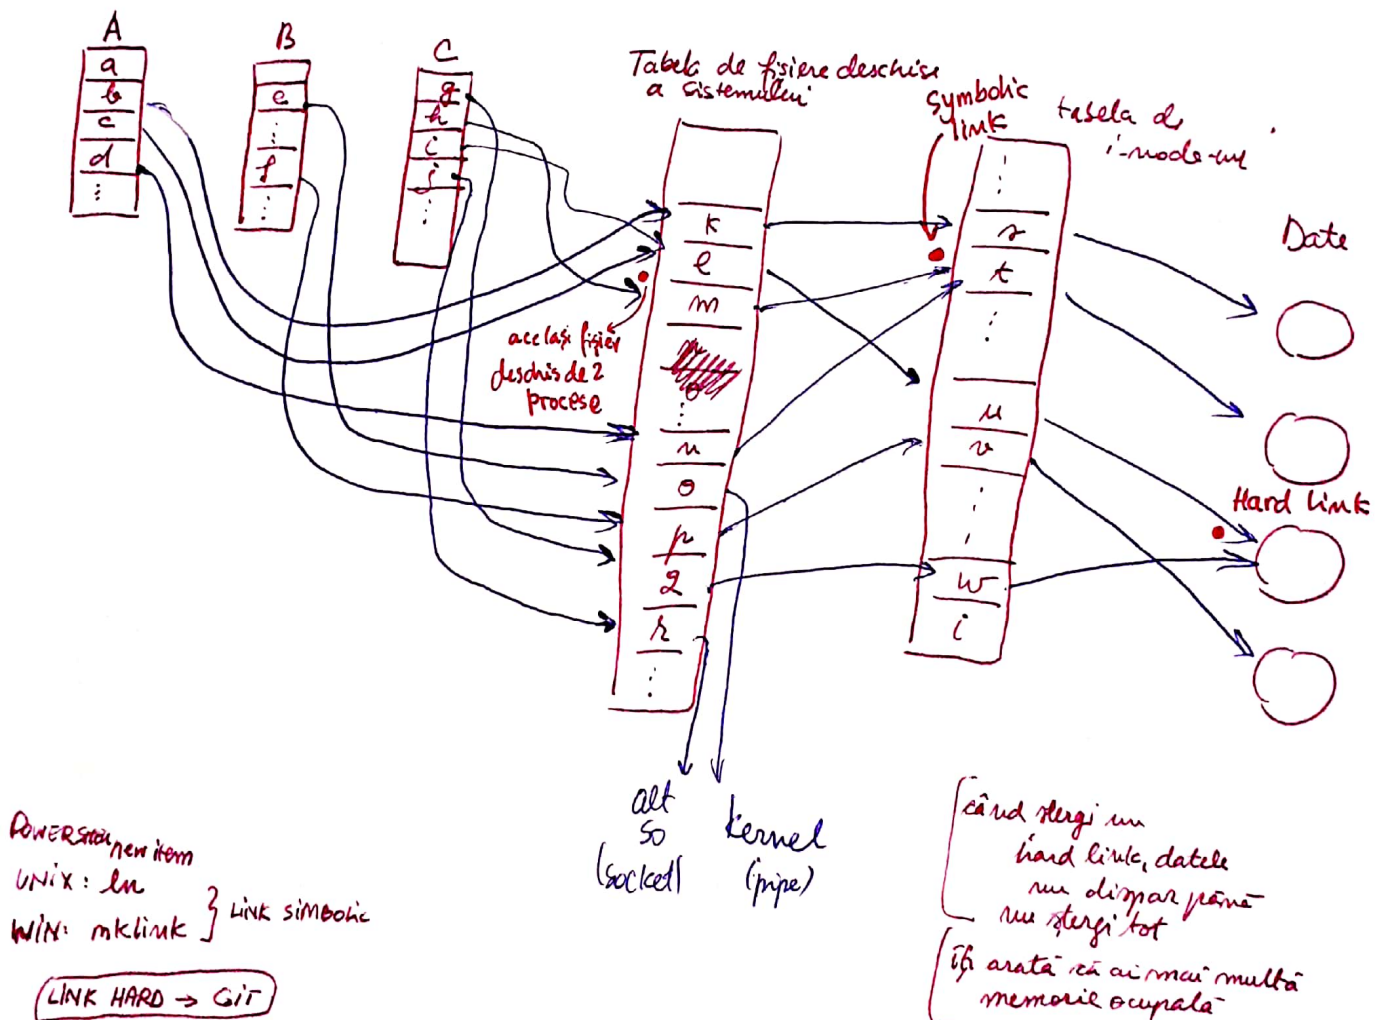 A
a
b
c
d
B
e
f
C
g
h
i
j
Tabela de fisiere deschise
a sistemului
k
l
m
o
n
o
p
q
r
acelasi fisier
deschis de 2
procese
symbolic
link
tabela de
i-node-uri
s
t
u
v
w
i
Date
Hard link
alt
SO
(socket)
kernel
(pipe)
POWERSHELL new item
UNIX: ln
WIN: mklink } LINK SIMBOLIC
LINK HARD → GIT
când ștergi un
hard link, datele
nu dispar până
nu ștergi tot
îți arată că ai mai multă
memorie ocupată